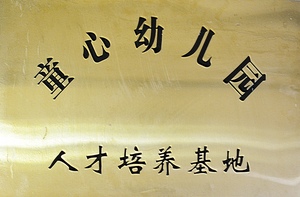 童心幼儿园
人才培养基地